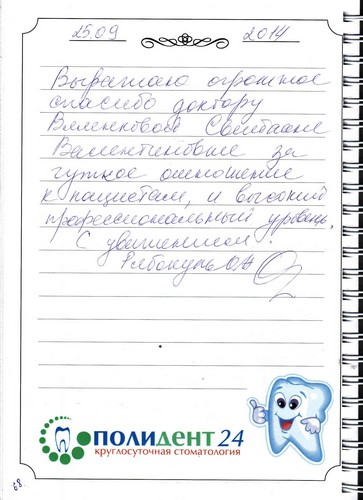 25.09 2014
Выражаю огромное
спасибо доктору
Светлане
Валентиновне за
чуткое отношение
к пациентам, и высокий
профессиональный уровень.
С уважением
ПОЛИДЕНТ 24
круглосуточная стоматология
68